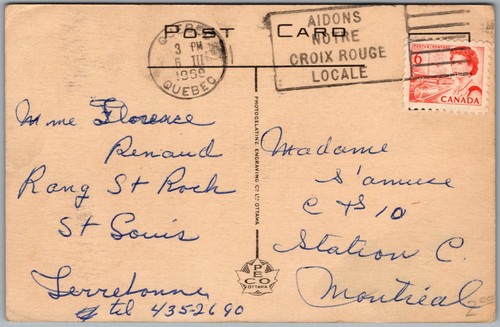 POST CARD
QUEBEC
3 PM
6 III
1969
QUEBEC
AIDONS
NOTRE
CROIX ROUGE
LOCALE
6
CANADA
Mme Florence
Renaud
Rang St Roch
St Louis
Terrebonne
tel 435-2690
PHOTOGELATINE ENGRAVING CO. LTD. OTTAWA
PECO
OTTAWA
Madame
S'amuse
C P 10
Station C.
Montréal
2.00